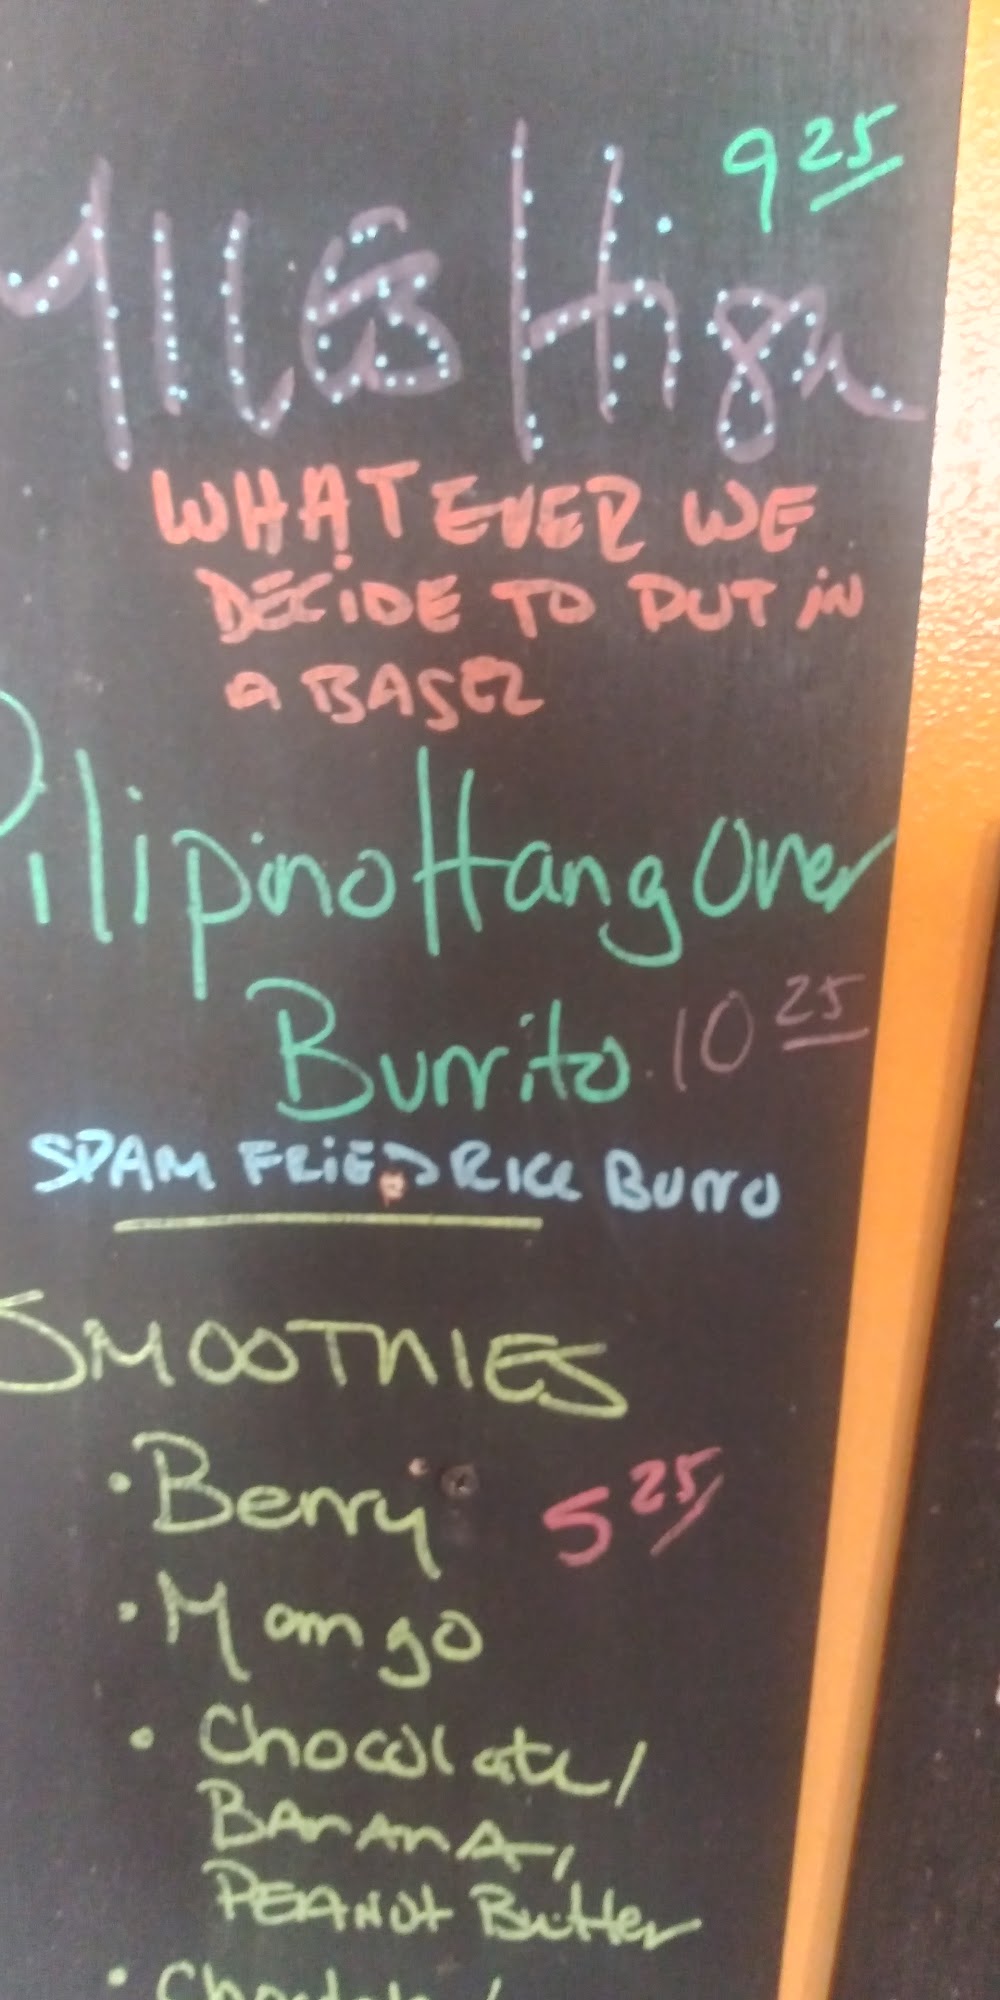 9 25
Miles High
WHATEVER WE
DECiDE TO PUT iN
a BASEL
Pilipino HangOver
Burrito 10 25
SPAM FRiED RICE Burro
SMOOTHIES
• Berry 5 25
• Mango
• Chocolate/
BANANA,
PEANUt Butter
• Chocolate/